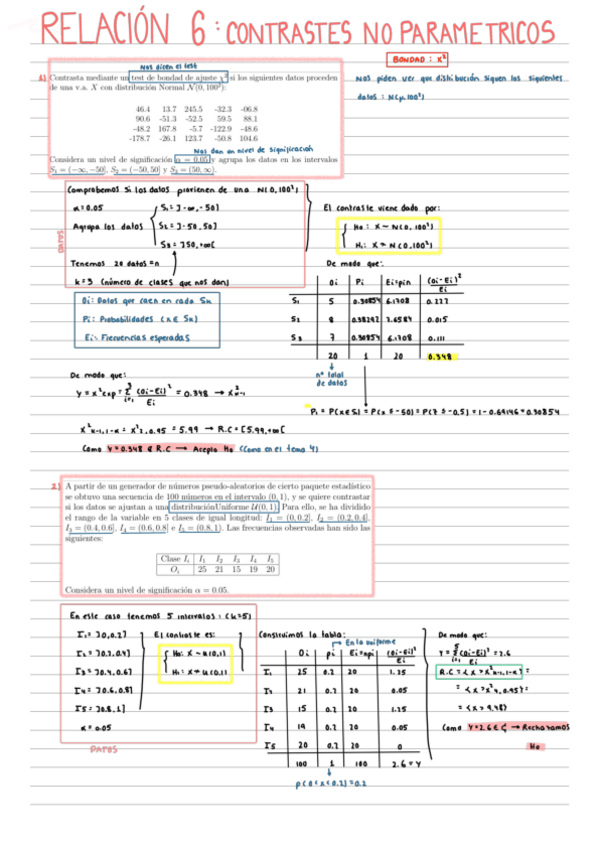 RELACIÓN 6: CONTRASTES NO PARAMETRICOS
Nos dicen el test
BONDAD: X²
1) Contrasta mediante un test de bondad de ajuste χ² si los siguientes datos proceden
de una v.a. X con distribución Normal N(0, 100²):
46.4 13.7 245.5 -32.3 -06.8
90.6 -51.3 -52.5 59.5 88.1
-48.2 167.8 -5.7 -122.9 -48.6
-178.7 -26.1 123.7 -50.8 104.6
Nos dan un nivel de significación
Considera un nivel de significación α = 0.05 y agrupa los datos en los intervalos
S₁ = (−∞, −50], S₂ = (−50, 50] y S₃ = (50, ∞).
Nos piden ver que distribución siguen los siguientes
datos: N(μ,100²)
Comprobemos si los datos provienen de una N(0,100²)
α=0.05
Agrupa los datos
S₁=]-∞,-50]
S₂=]-50,50]
S₃=]50,+∞[
Tenemos 20 datos=n
k=3 (número de clases que nos dan)
DATOS
El contraste viene dado por:
H₀: X ~ N(0,100²)
H₁: X ≁ N(0,100²)
De modo que:
Oi Pi Ei=pin (Oi-Ei)²/Ei
S₁ 5 0.30854 6.1708 0.222
S₂ 8 0.38292 7.6584 0.015
S₃ 7 0.30854 6.1708 0.111
20 1 20 0.348
nº total de datos
Oi: Datos que caen en cada Sk
Pi: Probabilidades (X∈Sk)
Ei: Frecuencias esperadas
De modo que:
Y = X²exp = Σ³ᵢ₌₁ (Oi-Ei)²/Ei = 0.348 → X²k-1
P₁ = P(X∈S₁) = P(X≤-50) = P(Z≤-0,5) = 1-0.69146 = 0.30854
X²k-1,1-α = X²2,0.95 = 5.99 → R.C = [5.99,+∞[
Como Y=0.348 ∉ R.C → Acepto H₀ (Como en el tema 4)
2) A partir de un generador de números pseudo-aleatorios de cierto paquete estadístico
se obtuvo una secuencia de 100 números en el intervalo (0, 1), y se quiere contrastar
si los datos se ajustan a una distribuciónUniforme U(0, 1). Para ello, se ha dividido
el rango de la variable en 5 clases de igual longitud: I₁ = (0, 0.2], I₂ = (0.2, 0.4],
I₃ = (0.4, 0.6], I₄ = (0.6, 0.8] e I₅ = (0.8, 1). Las frecuencias observadas han sido las
siguientes:
Clase Iᵢ I₁ I₂ I₃ I₄ I₅
Oᵢ 25 21 15 19 20
Considera un nivel de significación α = 0.05.
En este caso tenemos 5 intervalos: (k=5)
I₁=]0,0.2]
I₂=]0.2,0.4]
I₃=]0.4,0.6]
I₄=]0.6,0.8]
I₅=]0.8,1]
α=0.05
DATOS
El contraste es:
H₀: X ~ U(0,1)
H₁: X ≁ U(0,1)
Construimos la tabla:
En la uniforme
Oi pi Ei=npi (Oi-Ei)²/Ei
I₁ 25 0.2 20 1.25
I₂ 21 0.2 20 0.05
I₃ 15 0.2 20 1.25
I₄ 19 0.2 20 0.05
I₅ 20 0.2 20 0
100 1 100 2.6=Y
p(0<x<0.2)=0.2
De modo que:
Y = Σ⁵ᵢ₌₁ (Oi-Ei)²/Ei = 2.6
R.C = {X > X²k-1,1-α} =
= {X > X²4,0.95} =
= {X > 9.48}
Como Y=2.6 ∈ → Rechazamos
H₀